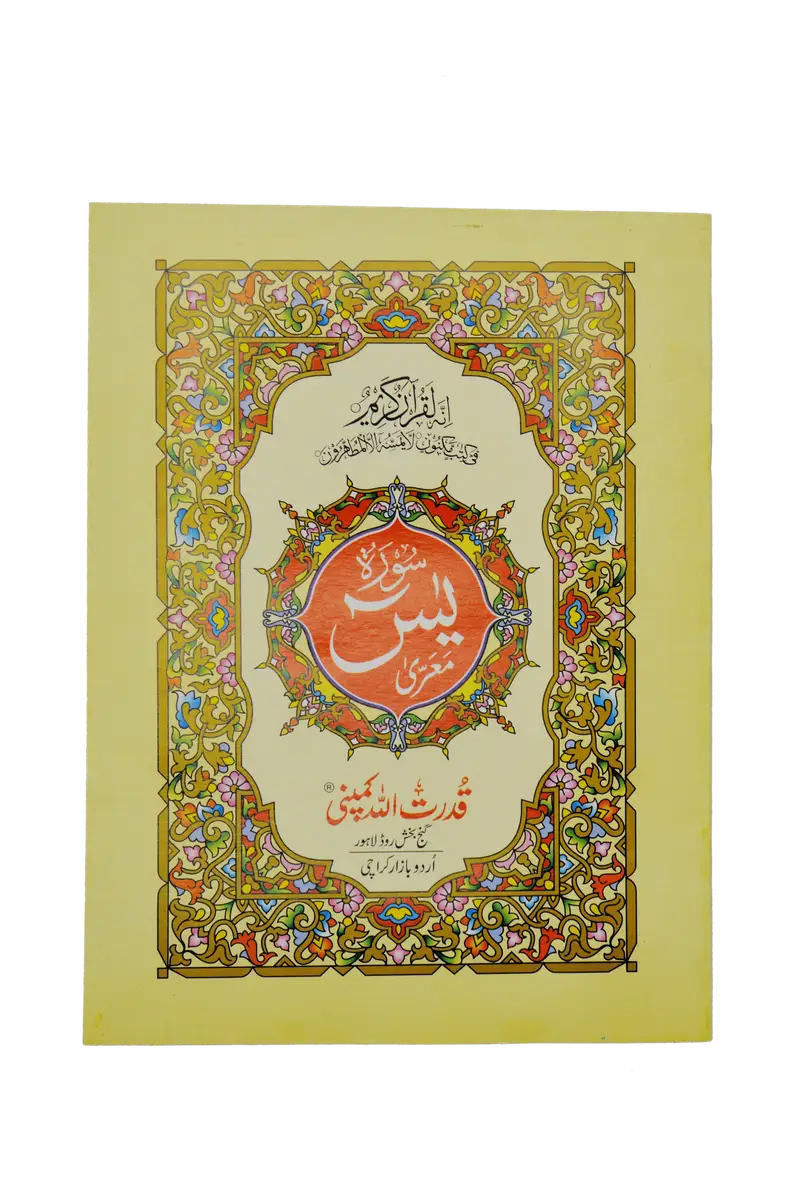 اِنَّهٗ لَقُرْاٰنٌ كَرِيْمٌ
فِيْ كِتٰبٍ مَّكْنُوْنٍ لَّا يَمَسُّهٗ اِلَّا الْمُطَهَّرُوْنَ
سُوْرَةُ
يٰسٓ
مَعَرّیٰ
قُدرت اللہ کمپنی ®
گنج بخش روڈ لاہور
اُردو بازار کراچی